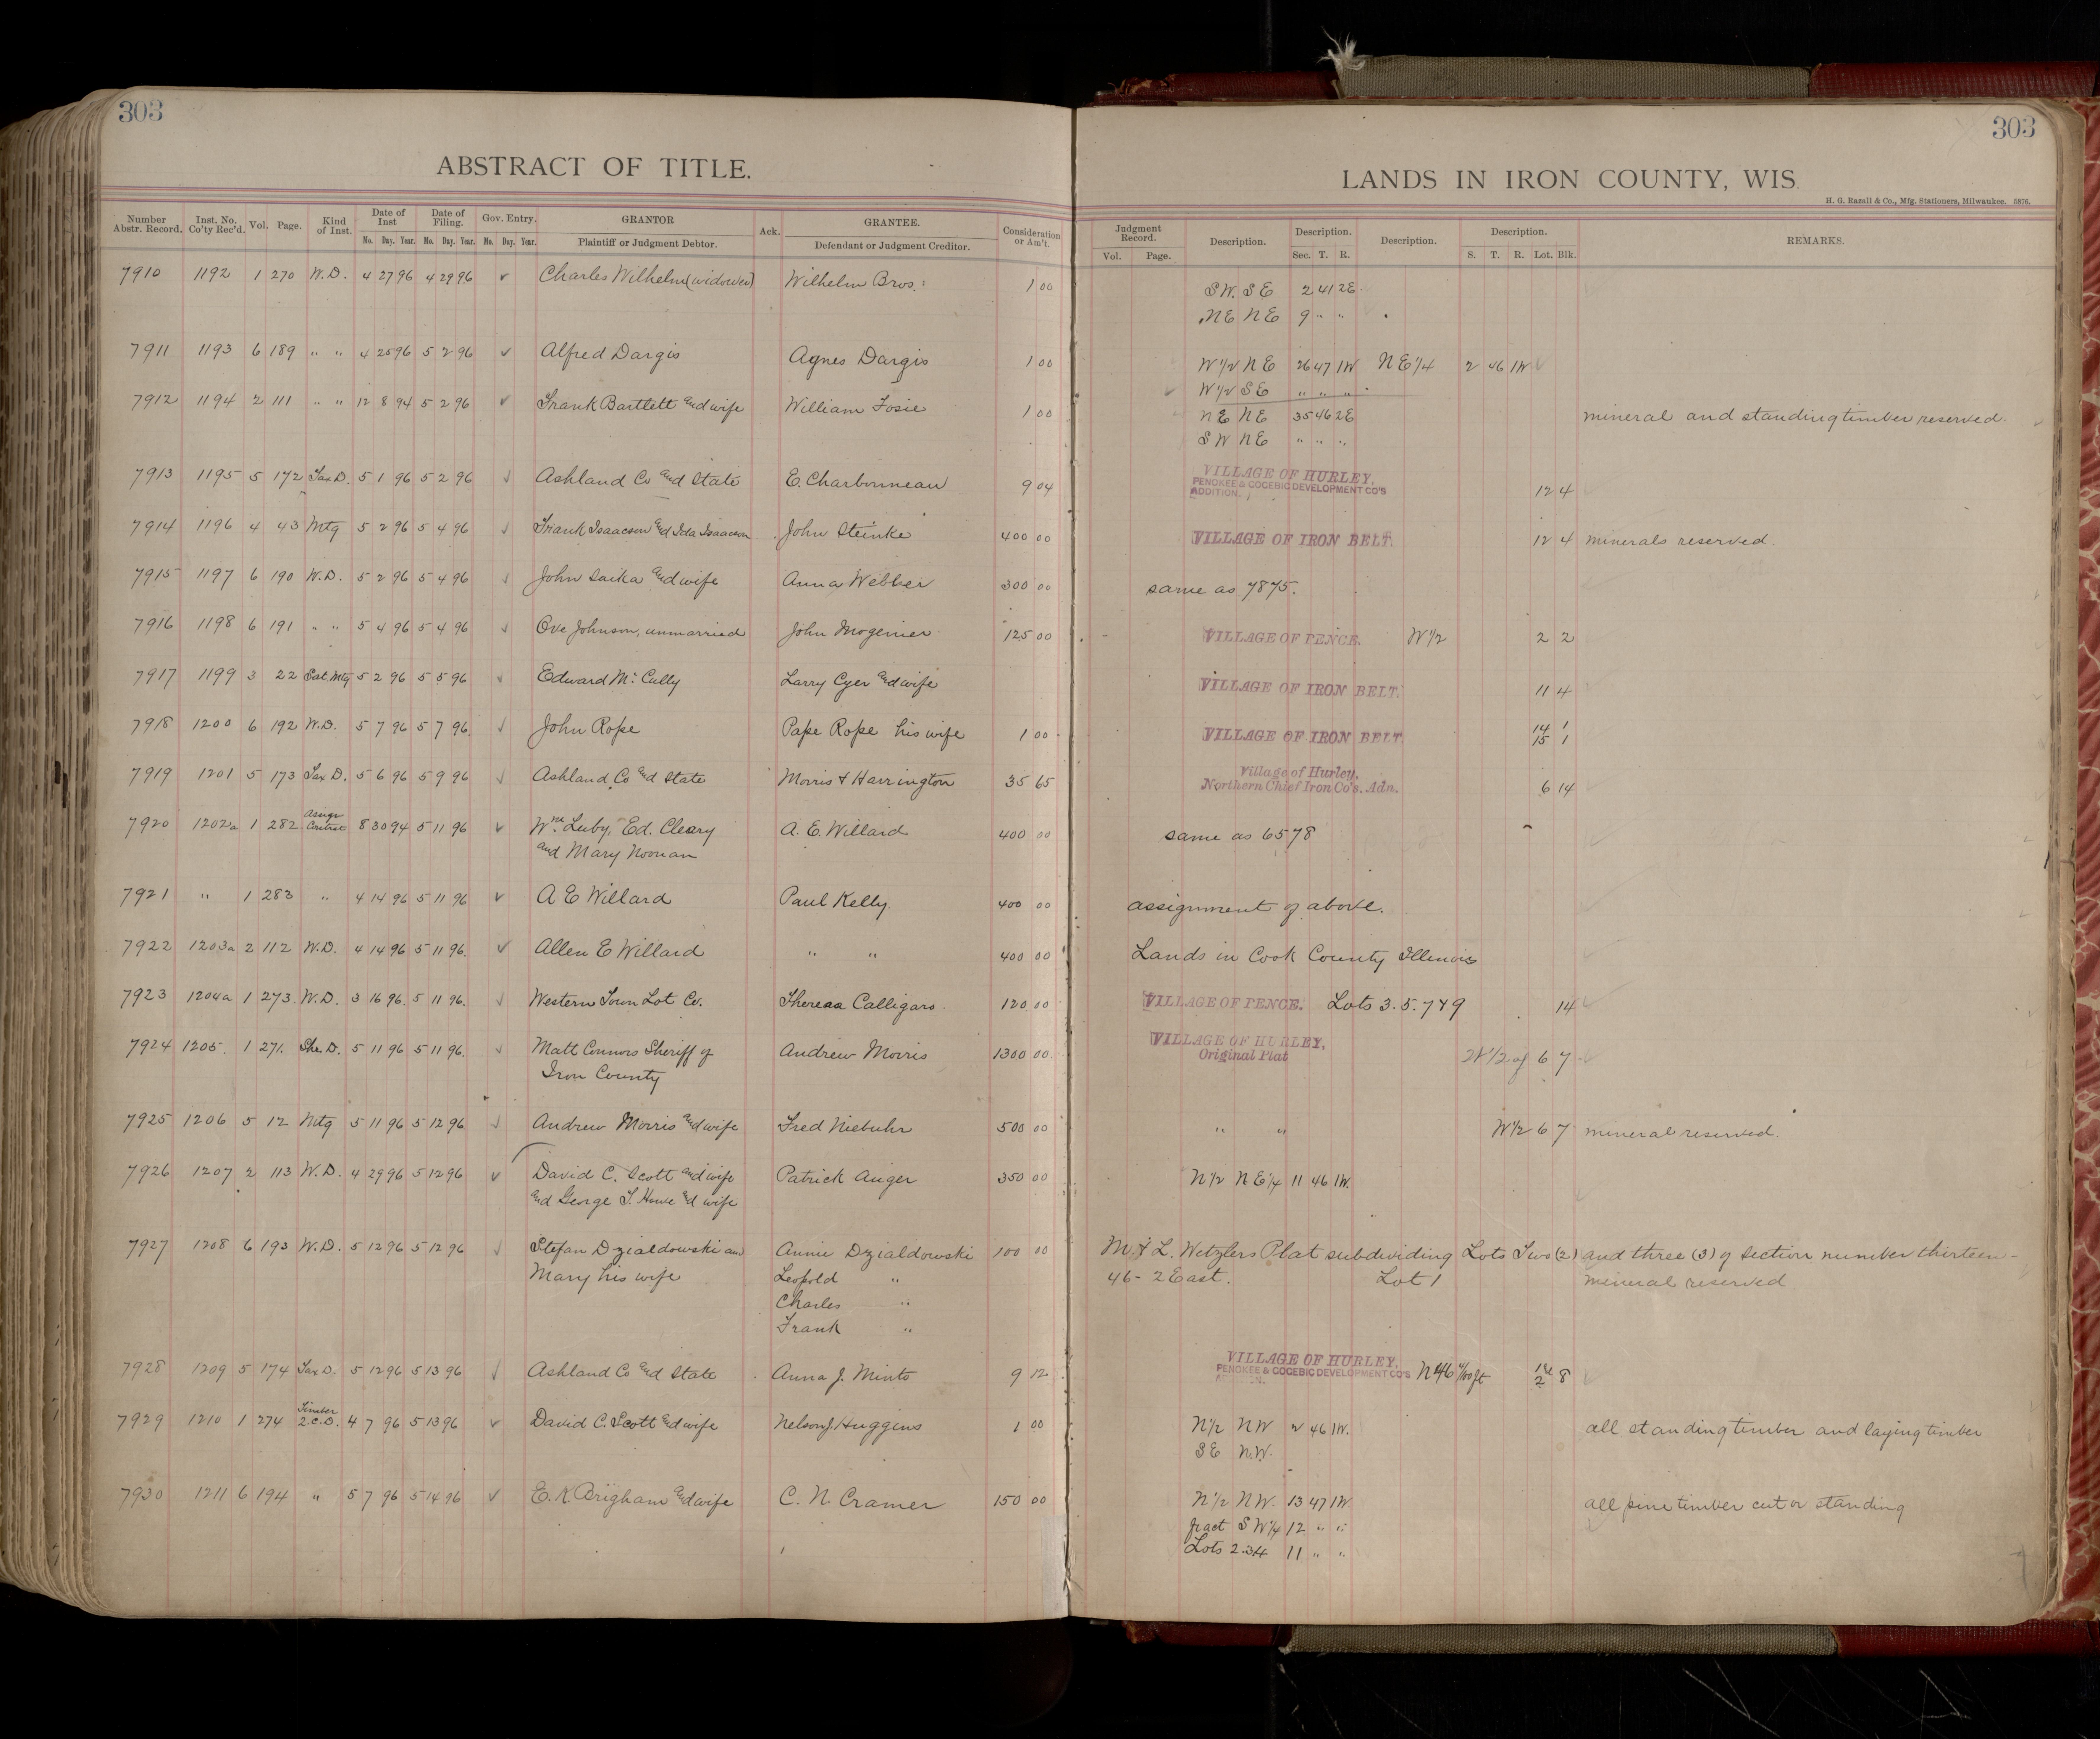 303
ABSTRACT OF TITLE.
Number Abstr. Record. Inst. No. Co'ty Rec'd. Vol. Page. Kind of Inst. Date of Inst Mo. Day. Year. Date of Filing. Mo. Day. Year. Gov. Entry. Mo. Day. Year. GRANTOR Plaintiff or Judgment Debtor. Ack. GRANTEE. Defendant or Judgment Creditor. Consideration or Am't.
7910 1192 1 270 W.D. 4 27 96 4 29 96 ✓ Charles Wilhelm (widower) Wilhelm Bros. 1 00
7911 1193 6 189 " " 4 25 96 5 2 96 ✓ Alfred Dargis Agnes Dargis 1 00
7912 1194 2 111 " " 12 8 94 5 2 96 ✓ Frank Bartlett and wife William Fosie 1 00
7913 1195 5 172 Tax D. 5 1 96 5 2 96 ✓ Ashland Co and State E. Charbonneau 9 04
7914 1196 4 43 Mtg 5 2 96 5 4 96 ✓ Frank Isaacson and Ida Isaacson John Steinke 400 00
7915 1197 6 190 W.D. 5 2 96 5 4 96 ✓ John Saika and wife Anna Webber 300 00
7916 1198 6 191 " " 5 4 96 5 4 96 ✓ Ove Johnson, unmarried John 125 00
7917 1199 3 22 Sat. Mtg 5 2 96 5 5 96 ✓ Edward McCully Larry Cyer and wife
7918 1200 6 192 W.D. 5 7 96 5 7 96. ✓ John Rope Pape Rope his wife 1 00
7919 1201 5 173 Tax D. 5 6 96 5 9 96 ✓ Ashland Co and State Morris & Harrington 35 65
7920 1202a 1 282 Assign Contract 8 30 94 5 11 96 ✓ Wm Luby, Ed. Cleary A. E. Willard 400 00
and Mary Noonan
7921 " 1 283 " 4 14 96 5 11 96 ✓ A E Willard Paul Kelly 400 00
7922 1203a 2 112 W.D. 4 14 96 5 11 96. ✓ Allen E Willard " " 400 00
7923 1204a 1 273 W.D. 3 16 96. 5 11 96. ✓ Western Town Lot Co. Theresa Calligaro 120 00
7924 1205. 1 271. She. D. 5 11 96 5 11 96. ✓ Matt Connors Sheriff of Andrew Morris 1300 00
Iron County
7925 1206 5 12 Mtg 5 11 96 5 12 96 ✓ Andrew Morris and wife Fred Niebuhr 500 00
7926 1207 2 113 W.D. 4 29 96 5 12 96 ✓ David C. Scott and wife Patrick Auger 350 00
and George T. Howe and wife
7927 1208 6 193 W.D. 5 12 96 5 12 96 ✓ Stefan Dzialdowski and Annie Dzialdowski 100 00
Mary his wife Leopold "
Charles "
Frank "
7928 1209 5 174 Tax D. 5 12 96 5 13 96 ✓ Ashland Co and State Anna J. Minto 9 12
7929 1210 1 274 Timber Q.C.D. 4 7 96 5 13 96 ✓ David C. Scott and wife Nelson J. Huggins 1 00
7930 1211 6 194 " 5 7 96 5 14 96 ✓ E. K. Brigham and wife C. N. Cramer 150 00
303
LANDS IN IRON COUNTY, WIS.
H. G. Razall & Co., Mfg. Stationers, Milwaukee. 5876.
Judgment Record. Vol. Page. Description. Description. Sec. T. R. Description. Description. S. T. R. Lot. Blk. REMARKS.
SW. SE 2 41 2E.
NE NE 9 " "
W 1/2 NE 26 47 1W NE 1/4 2 46 1W
W 1/2 SE " " "
NE NE 35 46 2E mineral and standing timber reserved.
SW NE " " "
VILLAGE OF HURLEY,
PENOKEE & GOGEBIC DEVELOPMENT CO'S
ADDITION. 12 4
VILLAGE OF IRON BELT. 12 4 minerals reserved.
same as 7875.
VILLAGE OF PENCE. W 1/2 2 2
VILLAGE OF IRON BELT. 11 4
14 1
VILLAGE OF IRON BELT. 15 1
Village of Hurley,
Northern Chief Iron Co's. Adn. 6 14
same as 6578
assignment of above.
Lands in Cook County Illinois
VILLAGE OF PENCE. Lots 3. 5. 7 & 9 14
VILLAGE OF HURLEY,
Original Plat W 1/2 of 6 7
" " W 1/2 6 7 mineral reserved.
N 1/2 NE 1/4 11 46 1W.
M. & L. Wetzlers Plat subdividing Lots Two (2) and three (3) of section number thirteen -
46 - 2 East. Lot 1 mineral reserved
VILLAGE OF HURLEY,
PENOKEE & GOGEBIC DEVELOPMENT CO'S 8
N 1/2 NW 2 46 1W. all standing timber and laying timber
SE N.W.
N 1/2 NW. 13 47 1W. all pine timber cut or standing
fract SW 1/4 12 " "
Lots 2.3.4 11 " "